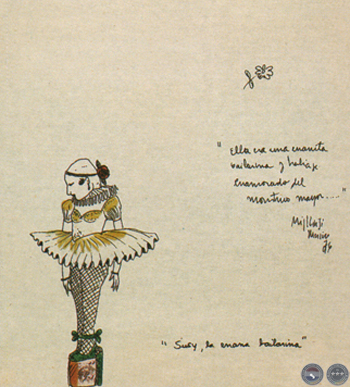 "Ella era una enanita
bailarina y habíase
enamorado del
monstruo mayor....."
"Susy, la enana bailarina"